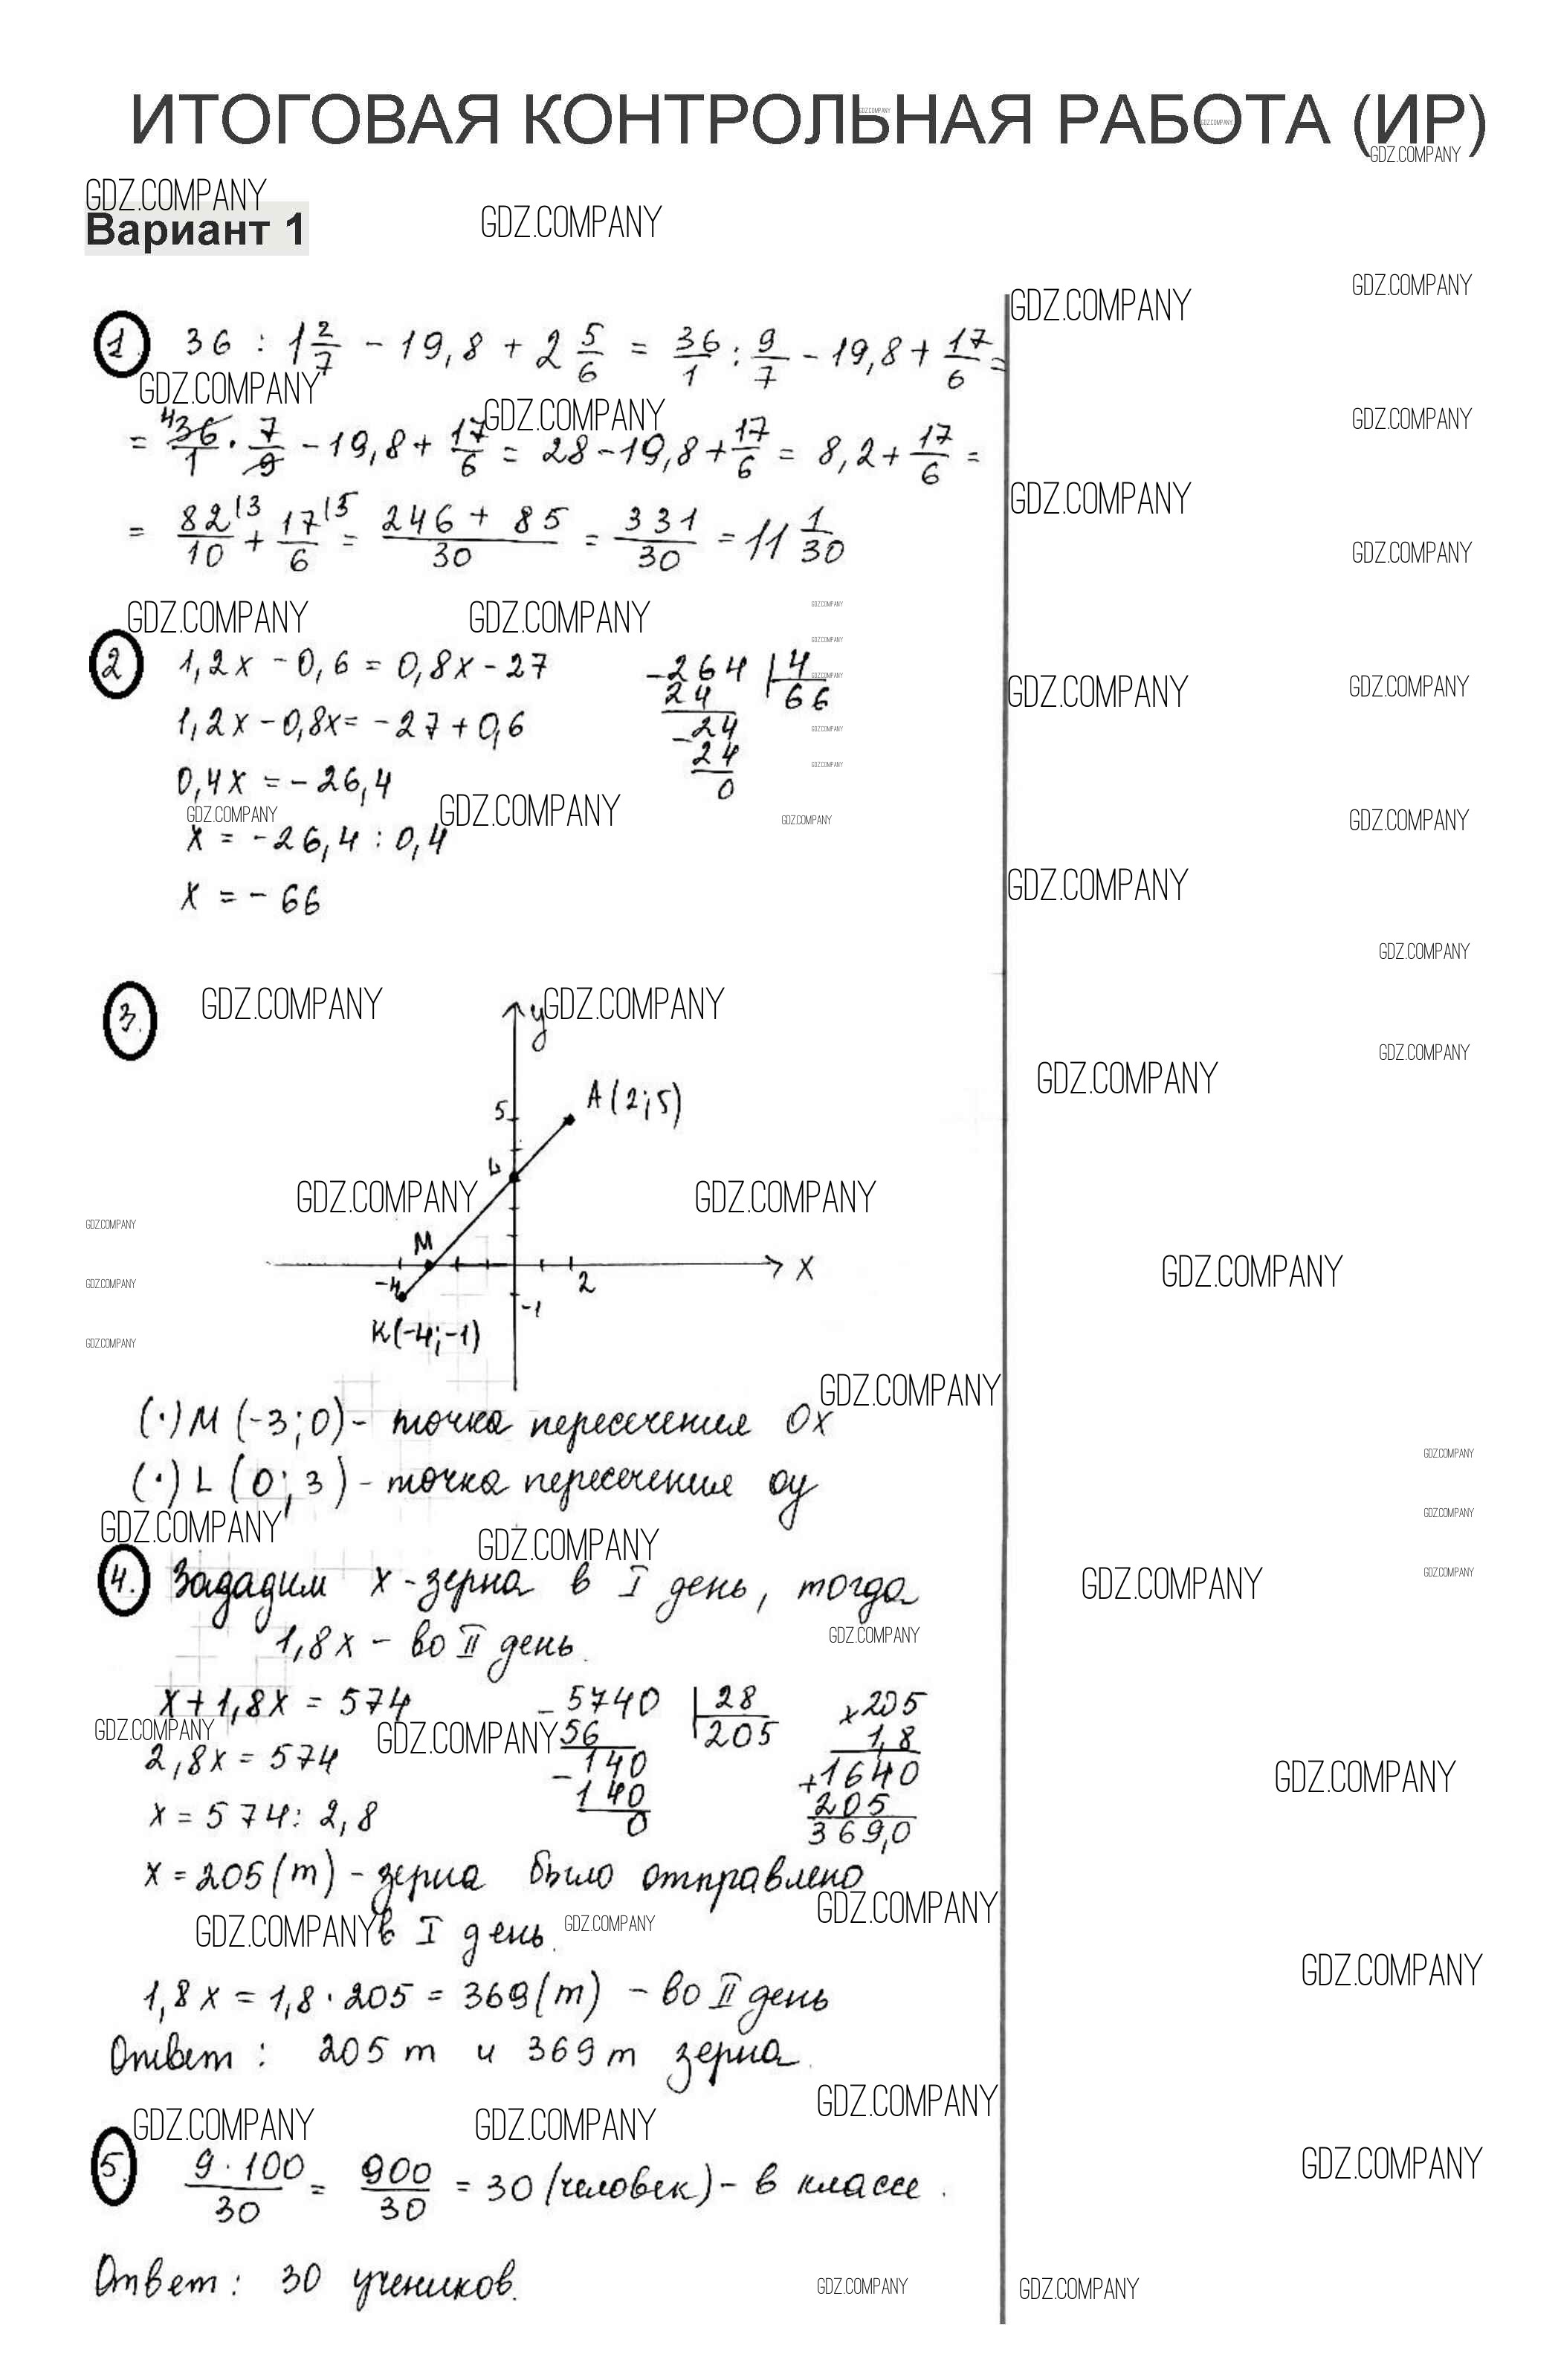 ИТОГОВАЯ КОНТРОЛЬНАЯ РАБОТА (ИР)
GDZ.COMPANY
Вариант 1
1. 36 : 1 2/7 - 19,8 + 2 5/6 = 36/1 : 9/7 - 19,8 + 17/6 =
= 36/1 · 7/9 - 19,8 + 17/6 = 28 - 19,8 + 17/6 = 8,2 + 17/6 =
= 82/10 + 17/6 = (246 + 85)/30 = 331/30 = 11 1/30
2. 1,2x - 0,6 = 0,8x - 27
1,2x - 0,8x = - 27 + 0,6
0,4x = - 26,4
x = - 26,4 : 0,4
x = - 66
-264 | 4
24 66
-24
24
0
3.
y
A(2;5)
5
L
M
-4
2
x
-1
K(-4;-1)
(·) M (-3; 0) - точка пересечения Ox
(·) L (0; 3) - точка пересечения Oy
4. Зададим x - зерна в I день, тогда
1,8x - во II день.
x + 1,8x = 574
2,8x = 574
x = 574 : 2,8
-5740 | 28
56 205
-140
140
0
×205
1,8
+1640
205
369,0
x = 205 (т) - зерна было отправлено
в I день.
1,8x = 1,8 · 205 = 369 (т) - во II день
Ответ: 205 т и 369 т зерна.
5. 9 · 100/30 = 900/30 = 30 (человек) - в классе.
Ответ: 30 учеников.